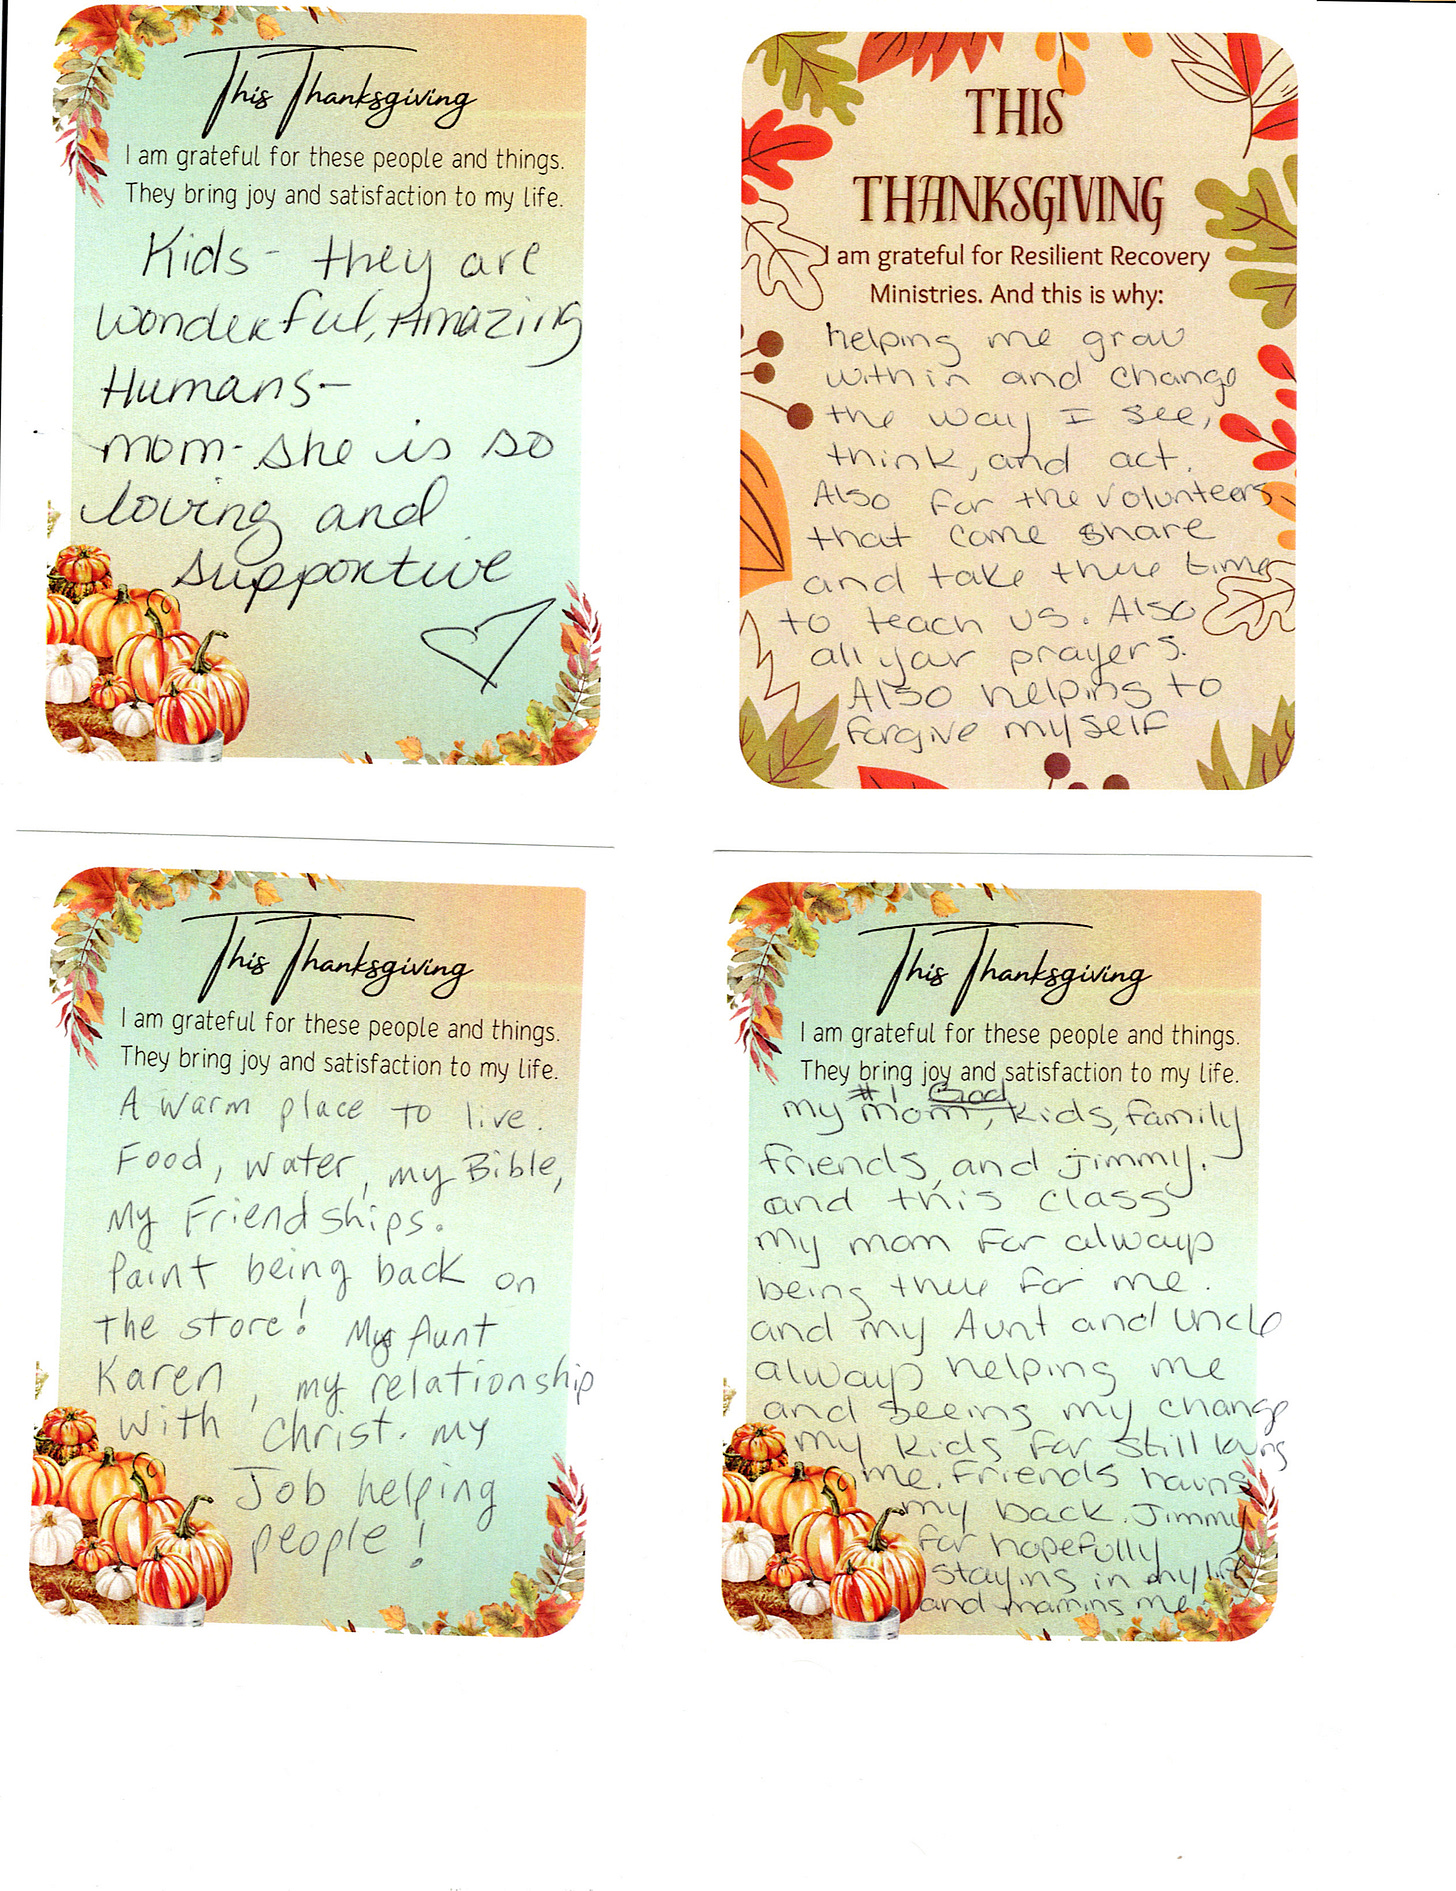 This Thanksgiving
I am grateful for these people and things.
They bring joy and satisfaction to my life.
Kids - they are
wonderful, Amazing
Humans-
mom - she is so
loving and
supportive
THIS
THANKSGIVING
I am grateful for Resilient Recovery
Ministries. And this is why:
helping me grow
within and change
the way I see,
think, and act.
Also for the volunteers
that come share
and take thure time
to teach us. Also
all your prayers.
Also helping to
forgive myself
This Thanksgiving
I am grateful for these people and things.
They bring joy and satisfaction to my life.
A warm place to live.
Food, water, my Bible,
My Friendships.
Paint being back on
the store! My Aunt
Karen, my relationship
with Christ. my
Job helping
people!
This Thanksgiving
I am grateful for these people and things.
They bring joy and satisfaction to my life.
#1 God
my mom, kids, family
friends, and jimmy.
and this class
my mom for always
being thure for me.
and my Aunt and uncle
always helping me
and seeing my change
my kids for still loving
me. Friends having
my back. Jimmy
for hopefully
staying in my life
and me.